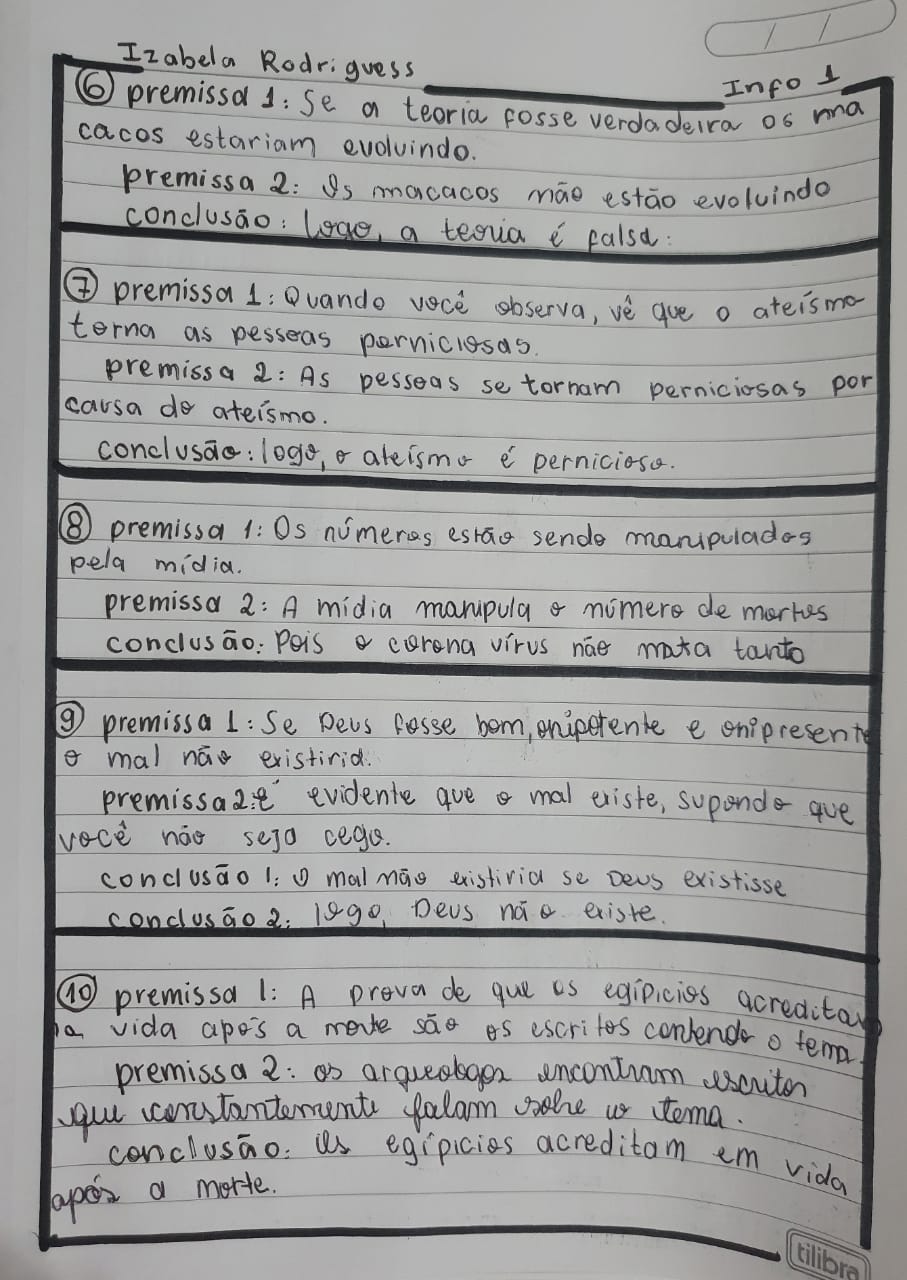 Izabela Rodriguess
Info 1
⑥ premissa 1: Se a teoria fosse verdadeira os ma
cacos estariam evoluindo.
premissa 2: Os macacos não estão evoluindo
conclusão: Logo, a teoria é falsa.
⑦ premissa 1: Quando você observa, vê que o ateísmo
torna as pessoas perniciosas.
premissa 2: As pessoas se tornam perniciosas por
causa do ateísmo.
conclusão: logo, o ateísmo é pernicioso.
⑧ premissa 1: Os números estão sendo manipulados
pela mídia.
premissa 2: A mídia manipula o número de mortos
conclusão: Pois o corona vírus não mata tanto
⑨ premissa 1: Se Deus fosse bom, onipotente e onipresente
o mal não existiria.
premissa 2: é evidente que o mal existe, supondo que
você não seja cego.
conclusão 1: O mal não existiria se Deus existisse
conclusão 2: logo, Deus não existe.
⑩ premissa 1: A prova de que os egípicios acreditav
na vida após a morte são os escritos contendo o tema.
premissa 2: os arqueologos encontram escritos
que constantemente falam sobre o tema.
conclusão: Os egípicios acreditam em vida
após a morte.
tilibra